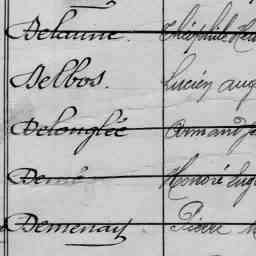 Delaune. Théophile
Delbos. Lucien
Delonglée Armand
Honoré
Demenay Pierre